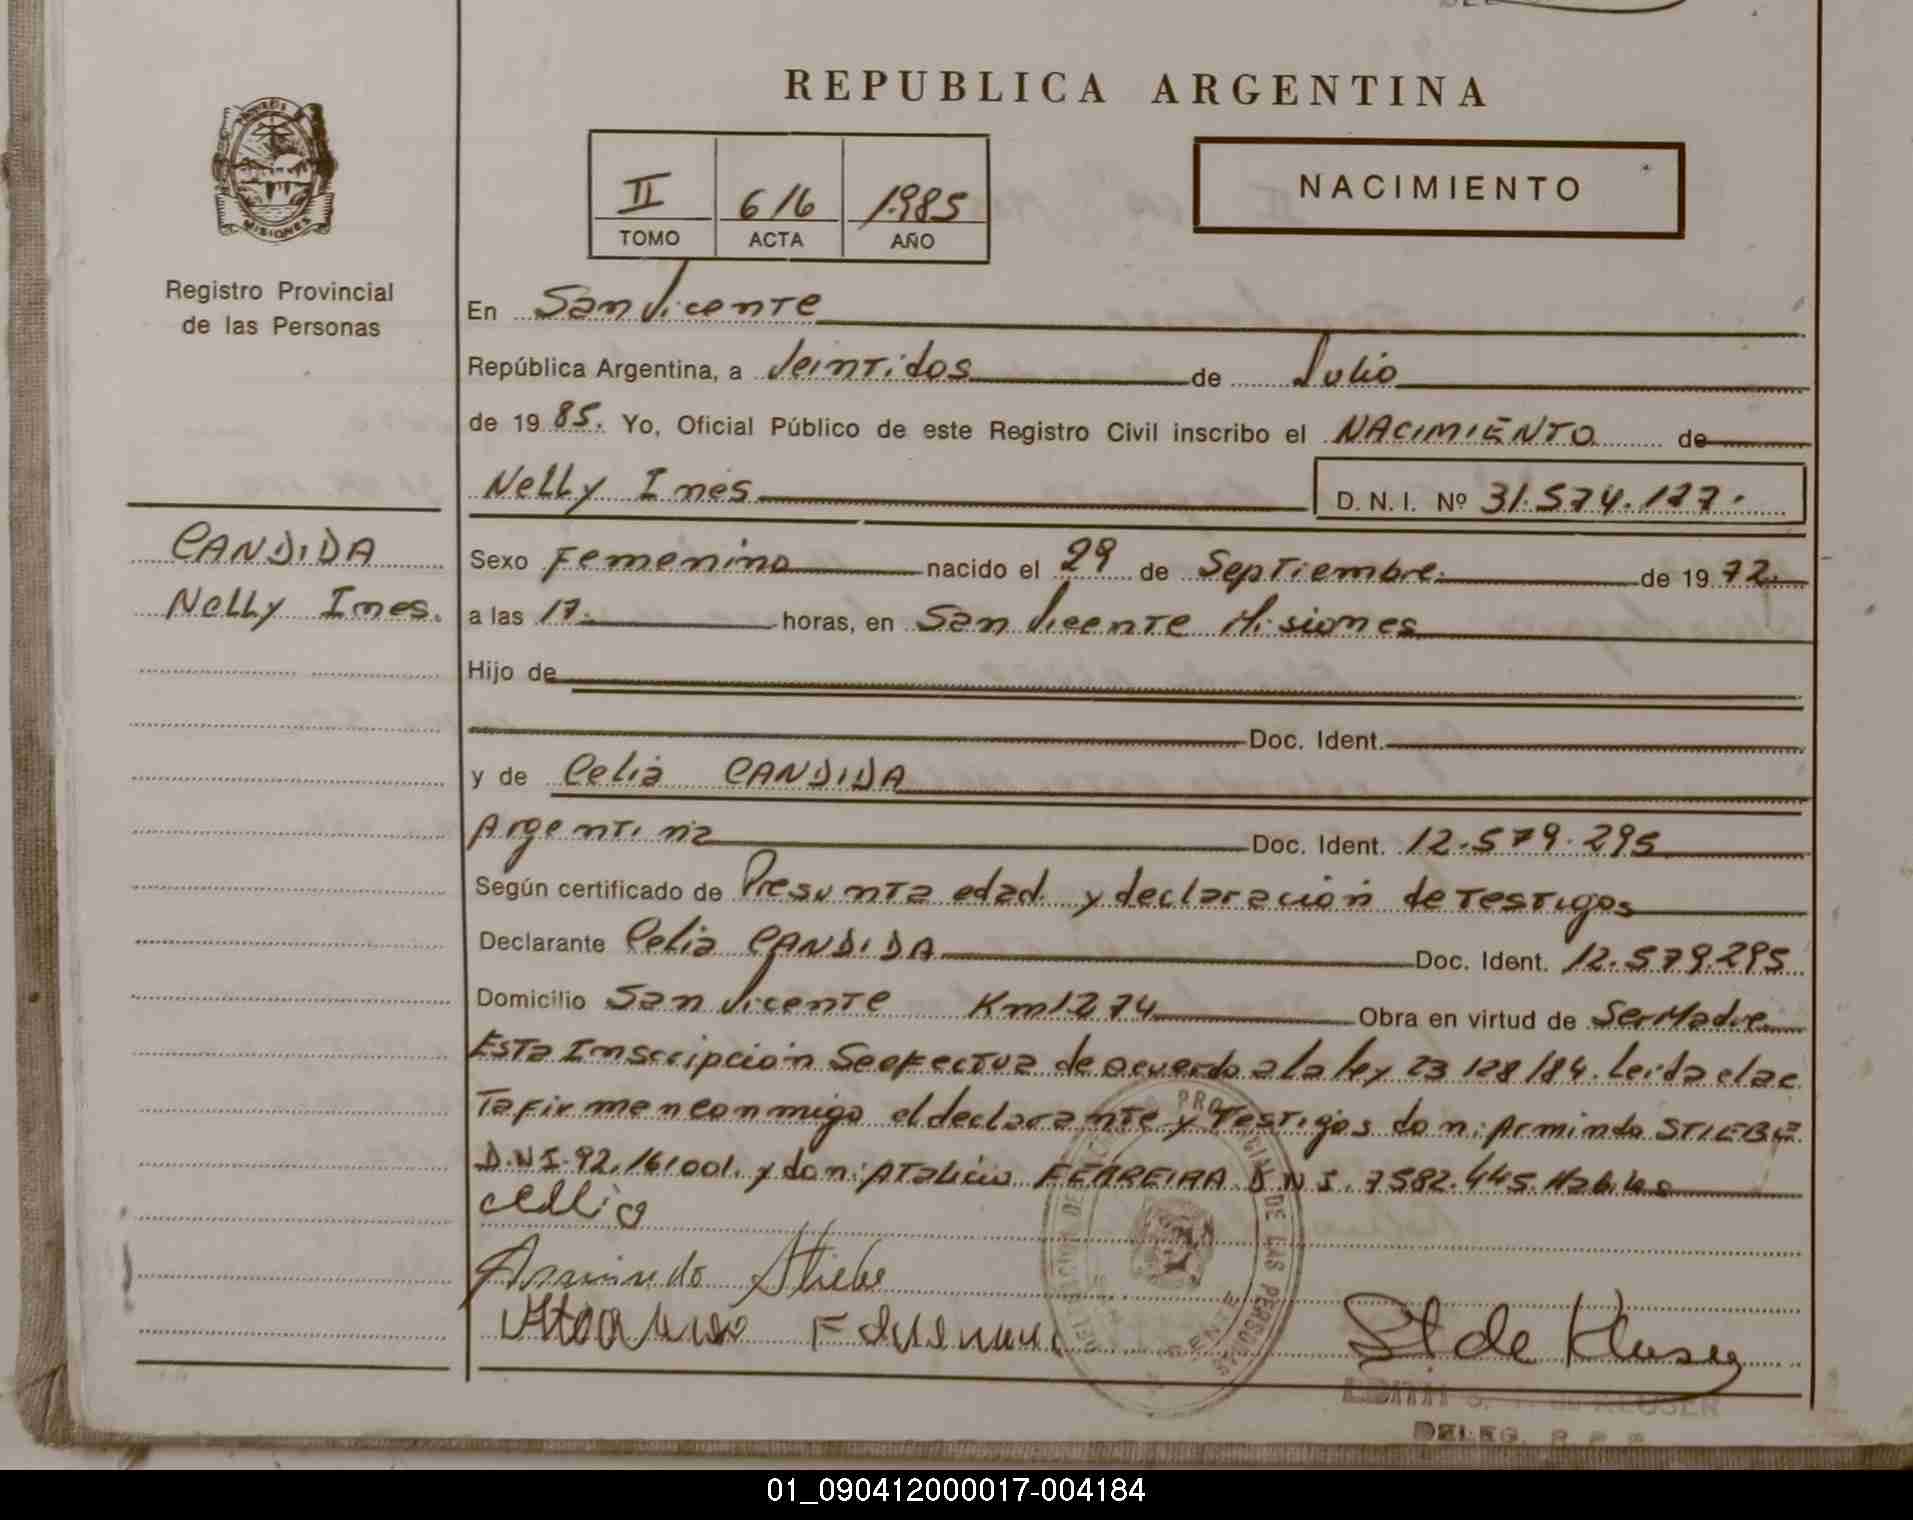 REPUBLICA ARGENTINA
NACIMIENTO
II 616 1985
TOMO ACTA AÑO
MISIONES
Registro Provincial
de las Personas
CANDIDA
Nelly Ines.
En San Vicente
República Argentina, a Veintidos de Julio
de 1985. Yo, Oficial Público de este Registro Civil inscribo el NACIMIENTO de
Nelly Ines D. N. I. Nº 31.574.177.
Sexo Femenino nacido el 29 de Septiembre de 1972.
a las 17. horas, en San Vicente Misiones
Hijo de
Doc. Ident.
y de Celia CANDIDA
Argentina Doc. Ident. 12.579.295
Según certificado de Presunta edad y declaración de Testigos
Declarante Celia CANDIDA Doc. Ident. 12.579.295
Domicilio San Vicente Km 1274 Obra en virtud de Ser Madre
Esta Inscripción Se efectua de acuerdo a la ley 23 128/84. Leida el ac
Ta firmen conmigo el declarante y Testigos don: Armindo STIEBE
D.N.I. 92.161001. y don: Atalicio FERREIRA D.N.I. 7582.445. Habiles
Armindo Stiebe
St de Kluser
DE LAS PERSONAS
KLUSER
DELEG. R. P. P.
01_090412000017-004184